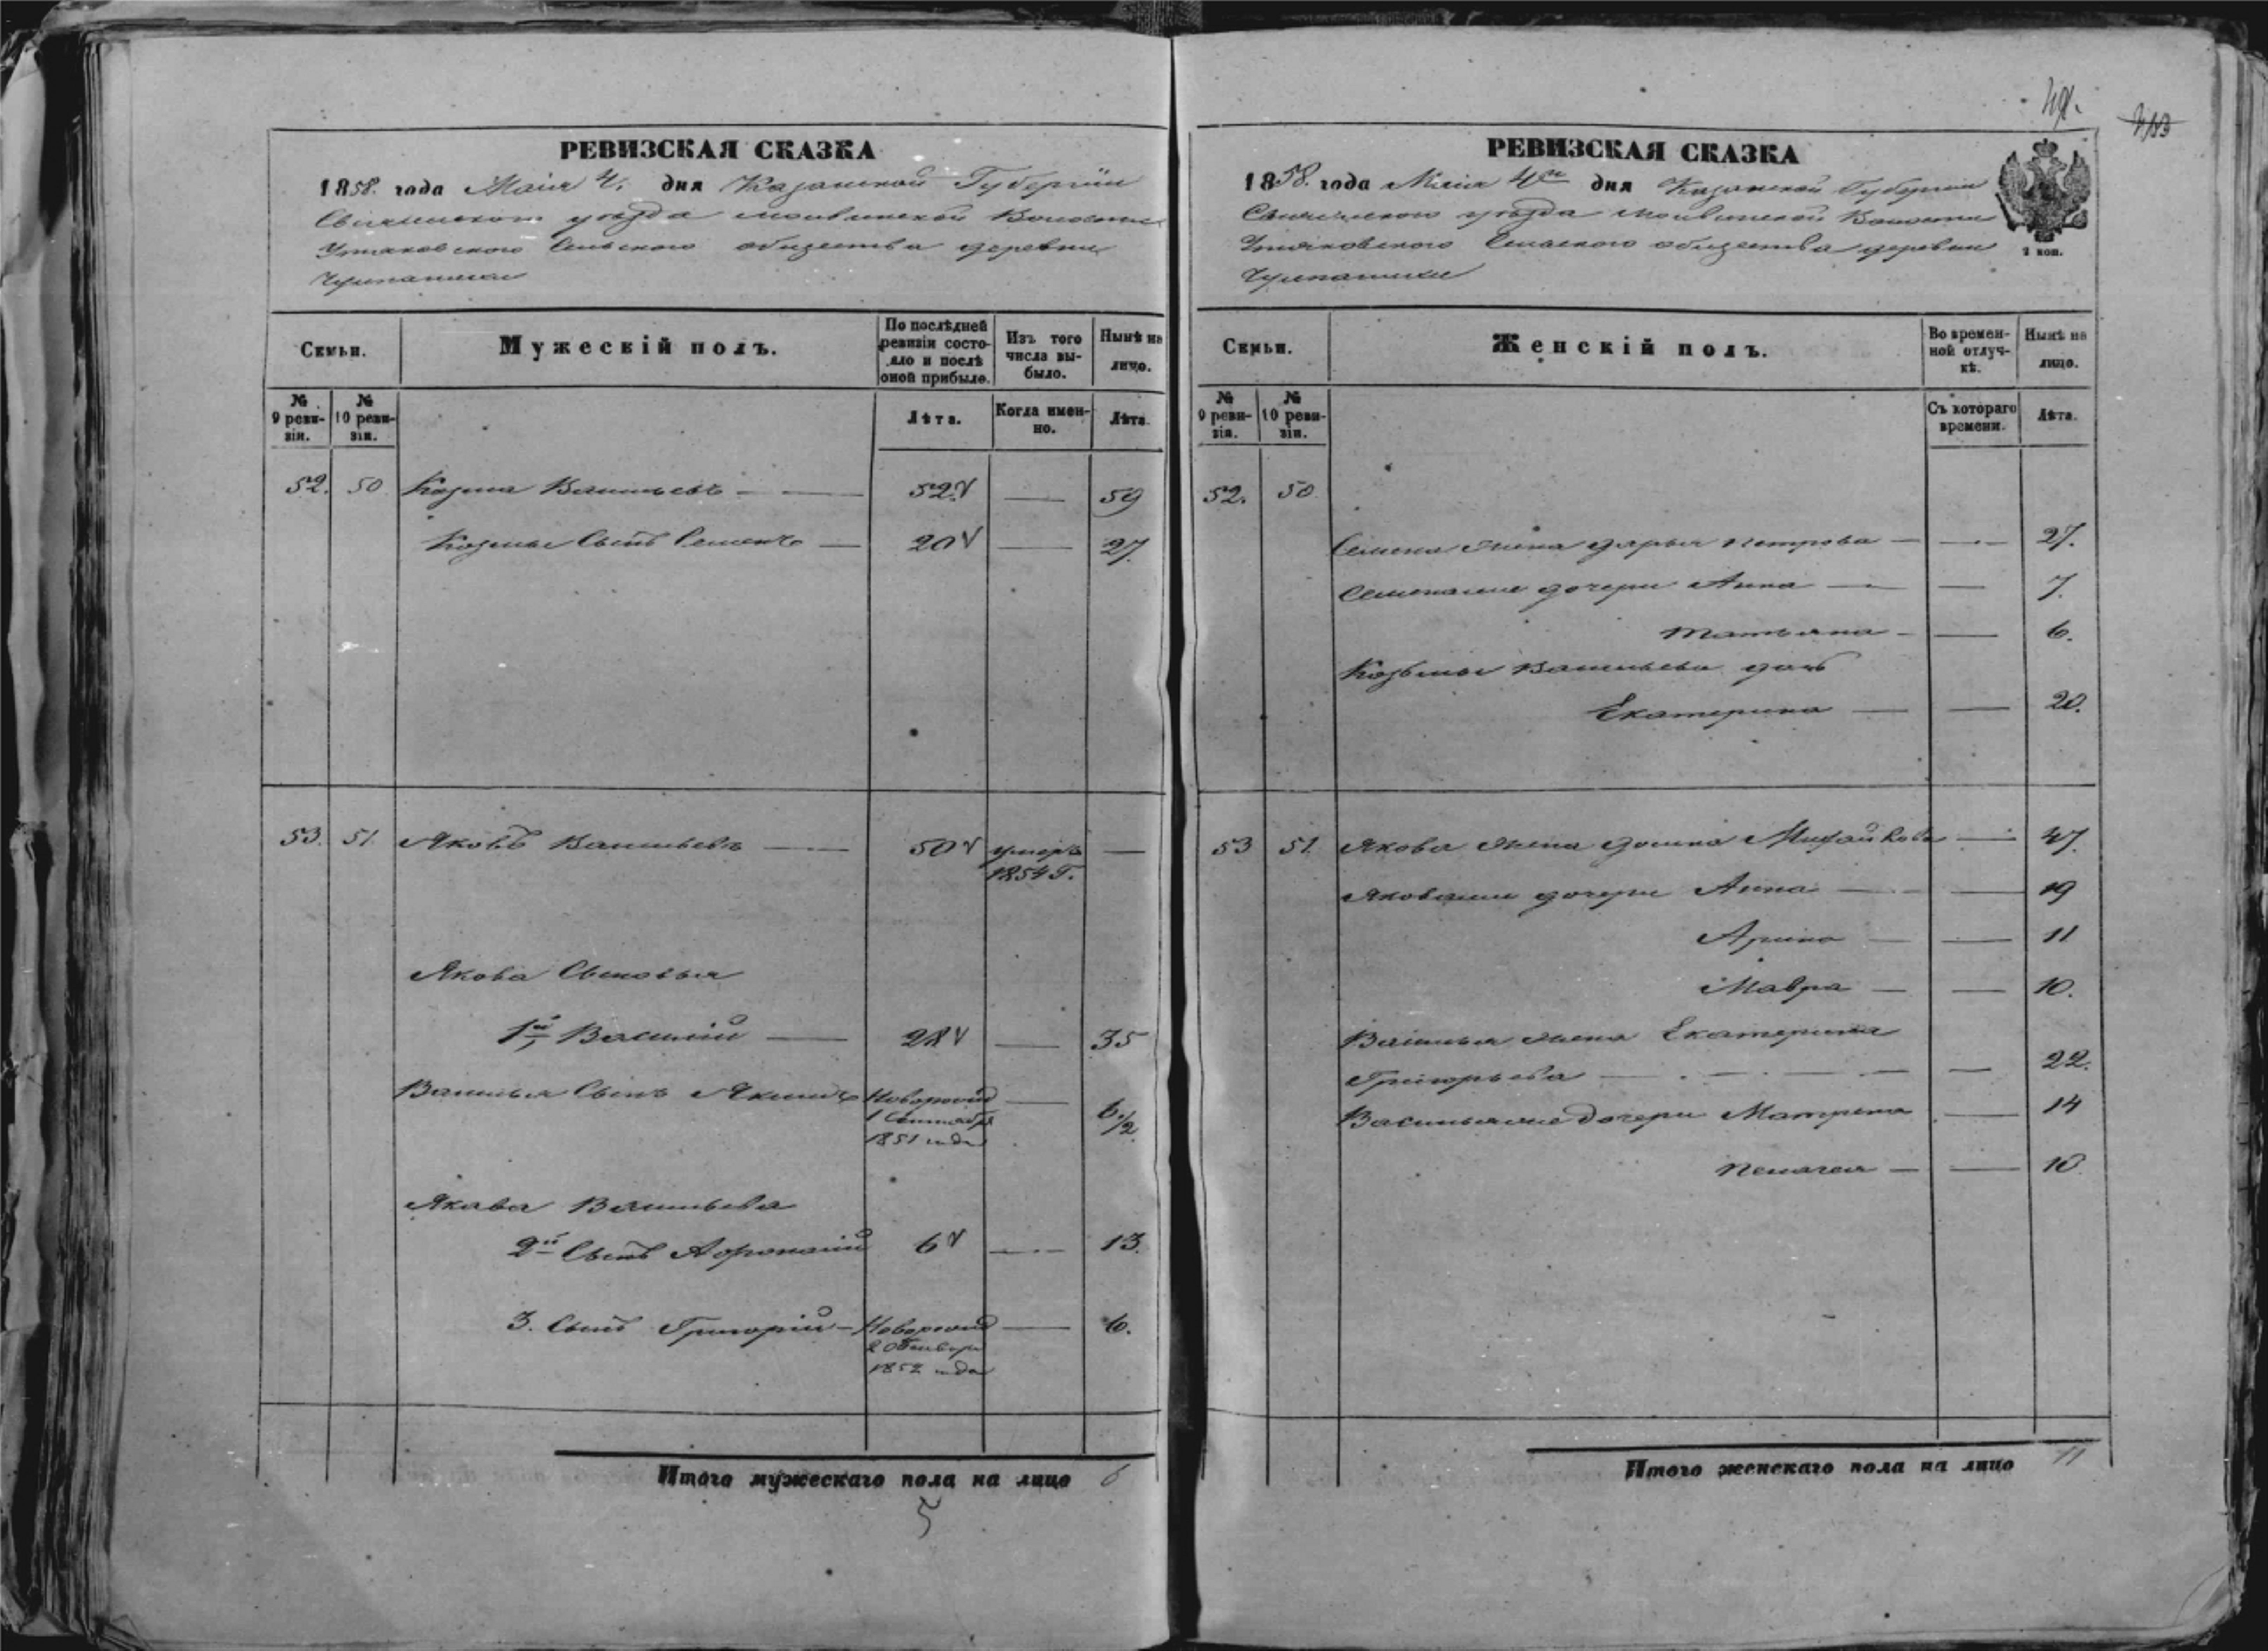 РЕВИЗСКАЯ СКАЗКА
1858. года Маія 4. дня Казанской Губерніи
Свіяжскаго уѣзда Волости
Утяковского Сельского общества деревни
Семьи.
Мужескій полъ.
По послѣдней ревизіи состояло и послѣ оной прибыло.
Изъ того числа выбыло.
Нынѣ на лицо.
№ 9 ревизіи.
№ 10 ревизіи.
Лѣта.
Когда именно.
Лѣта.
52. 50 Козма Васильевъ — 52 — 59
Козмы Сынъ Семенъ — 20 — 27.
53. 51. Яковъ Васильевъ — 50 умеръ —
1854 г.
Якова Сыновья
1й Василій — 28 — 35
Василья Сынъ Якимъ Новорожд — 6 1/2
1 Сентября
1851 года
Якова Васильева
2й Сынъ Афонасій 6 — 13.
3. Сынъ Григорій — Новорожд — 6.
1852 года
Итого мужескаго пола на лицо 6
5
49.
РЕВИЗСКАЯ СКАЗКА
1858. года Маія 4го дня Казанской Губерніи
Свіяжского уѣзда Волости
Утяковского Сельского общества деревни
2 коп.
Семьи.
Женскій полъ.
Во временной отлучкѣ.
Нынѣ на лицо.
№ 9 ревизіи.
№ 10 ревизіи.
Съ котораго времени.
Лѣта.
52. 50
Семена жена Дарья Петрова — — 27.
Семеновые дочери Анна — — 7.
Татьяна — — 6.
Козьмы Васильева дочь
Екатерина — — 20.
53 51. Якова жена Домна Михайлова — 47.
дочери Анна — — 19
Арина — — 11
Мавра — — 10.
Василья жена Екатерина
Григорьева — — 22.
дочери Матрена — 14
Пелагея — — 10
Итого женскаго пола на лицо 11